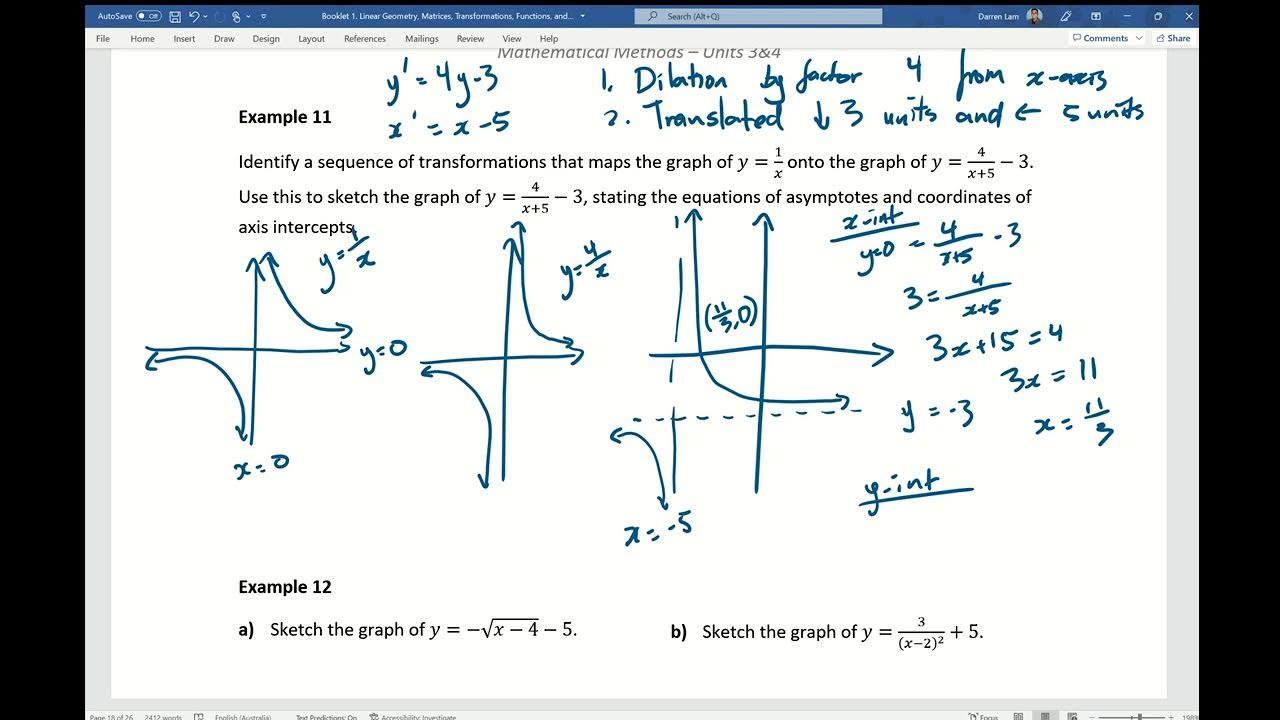 AutoSave Off Booklet 1. Linear Geometry, Matrices, Transformations, Functions, and... Search (Alt+Q) Darren Lam
File Home Insert Draw Design Layout References Mailings Review View Help Comments Share
Mathematical Methods – Units 3&4
y' = 4y-3
x' = x-5
1. Dilation by factor 4 from x-axis
2. Translated ↓ 3 units and ← 5 units
Example 11
Identify a sequence of transformations that maps the graph of y = 1/x onto the graph of y = 4/(x+5) − 3.
Use this to sketch the graph of y = 4/(x+5) − 3, stating the equations of asymptotes and coordinates of
axis intercepts.
y = 1/x
y=0
x=0
y = 4/x
(11/3, 0)
x=-5
x-int
y=0 = 4/(x+5) - 3
3 = 4/(x+5)
3x+15 = 4
3x = 11
x = 11/3
y = -3
y-int
Example 12
a) Sketch the graph of y = −√(x − 4) − 5.
b) Sketch the graph of y = 3/(x−2)² + 5.
Page 18 of 26 2412 words English (Australia) Text Predictions: On Accessibility: Investigate Focus